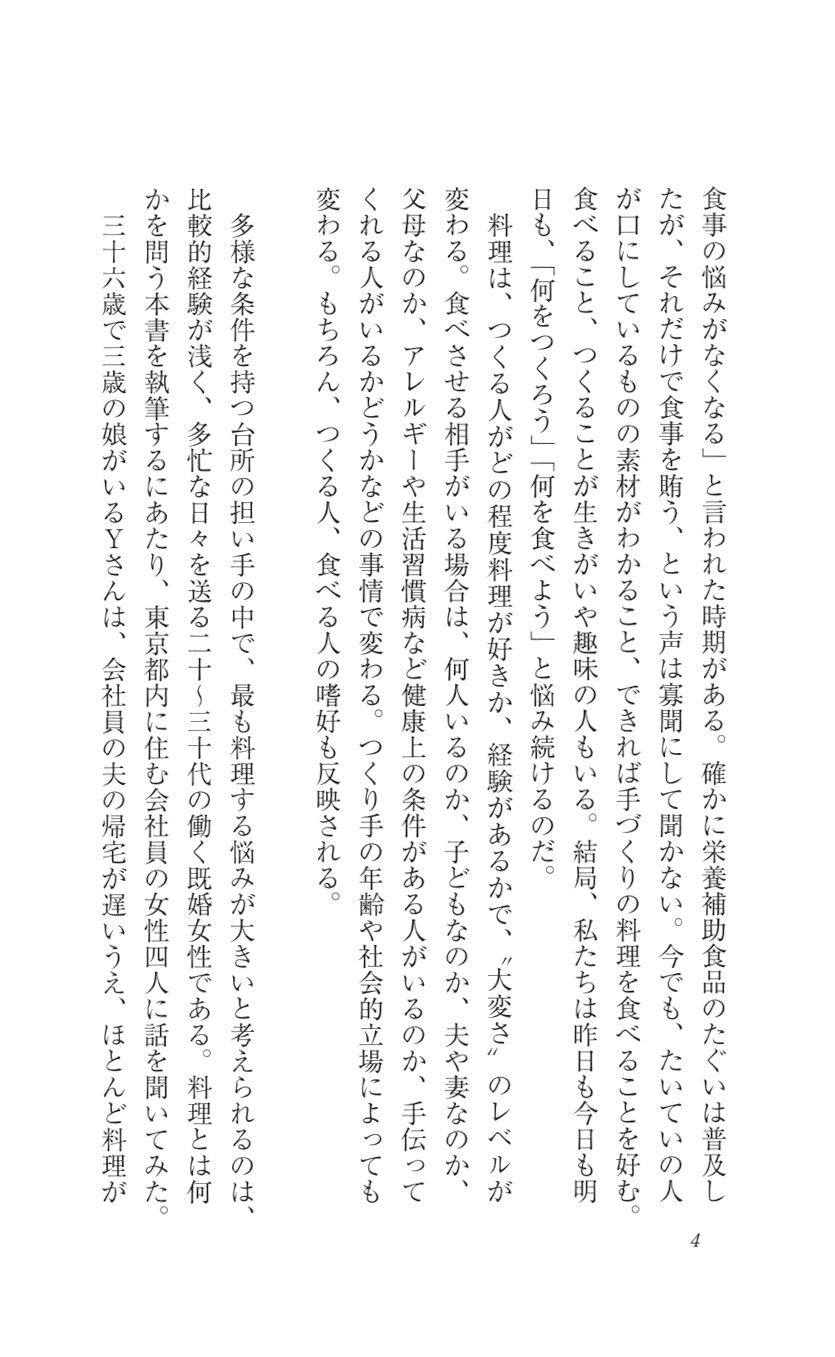 食事の悩みがなくなる」と言われた時期がある。確かに栄養補助食品のたぐいは普及し
たが、それだけで食事を賄う、という声は寡聞にして聞かない。今でも、たいていの人
が口にしているものの素材がわかること、できれば手づくりの料理を食べることを好む。
食べること、つくることが生きがいや趣味の人もいる。結局、私たちは昨日も今日も明
日も、「何をつくろう」「何を食べよう」と悩み続けるのだ。
　料理は、つくる人がどの程度料理が好きか、経験があるかで、〝大変さ〟のレベルが
変わる。食べさせる相手がいる場合は、何人いるのか、子どもなのか、夫や妻なのか、
父母なのか、アレルギーや生活習慣病など健康上の条件がある人がいるのか、手伝って
くれる人がいるかどうかなどの事情で変わる。つくり手の年齢や社会的立場によっても
変わる。もちろん、つくる人、食べる人の嗜好も反映される。
　多様な条件を持つ台所の担い手の中で、最も料理する悩みが大きいと考えられるのは、
比較的経験が浅く、多忙な日々を送る二十～三十代の働く既婚女性である。料理とは何
かを問う本書を執筆するにあたり、東京都内に住む会社員の女性四人に話を聞いてみた。
　三十六歳で三歳の娘がいるＹさんは、会社員の夫の帰宅が遅いうえ、ほとんど料理が
4